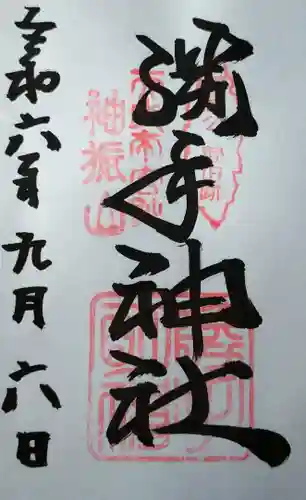 勝手神社
袖振山
令和六年九月六日